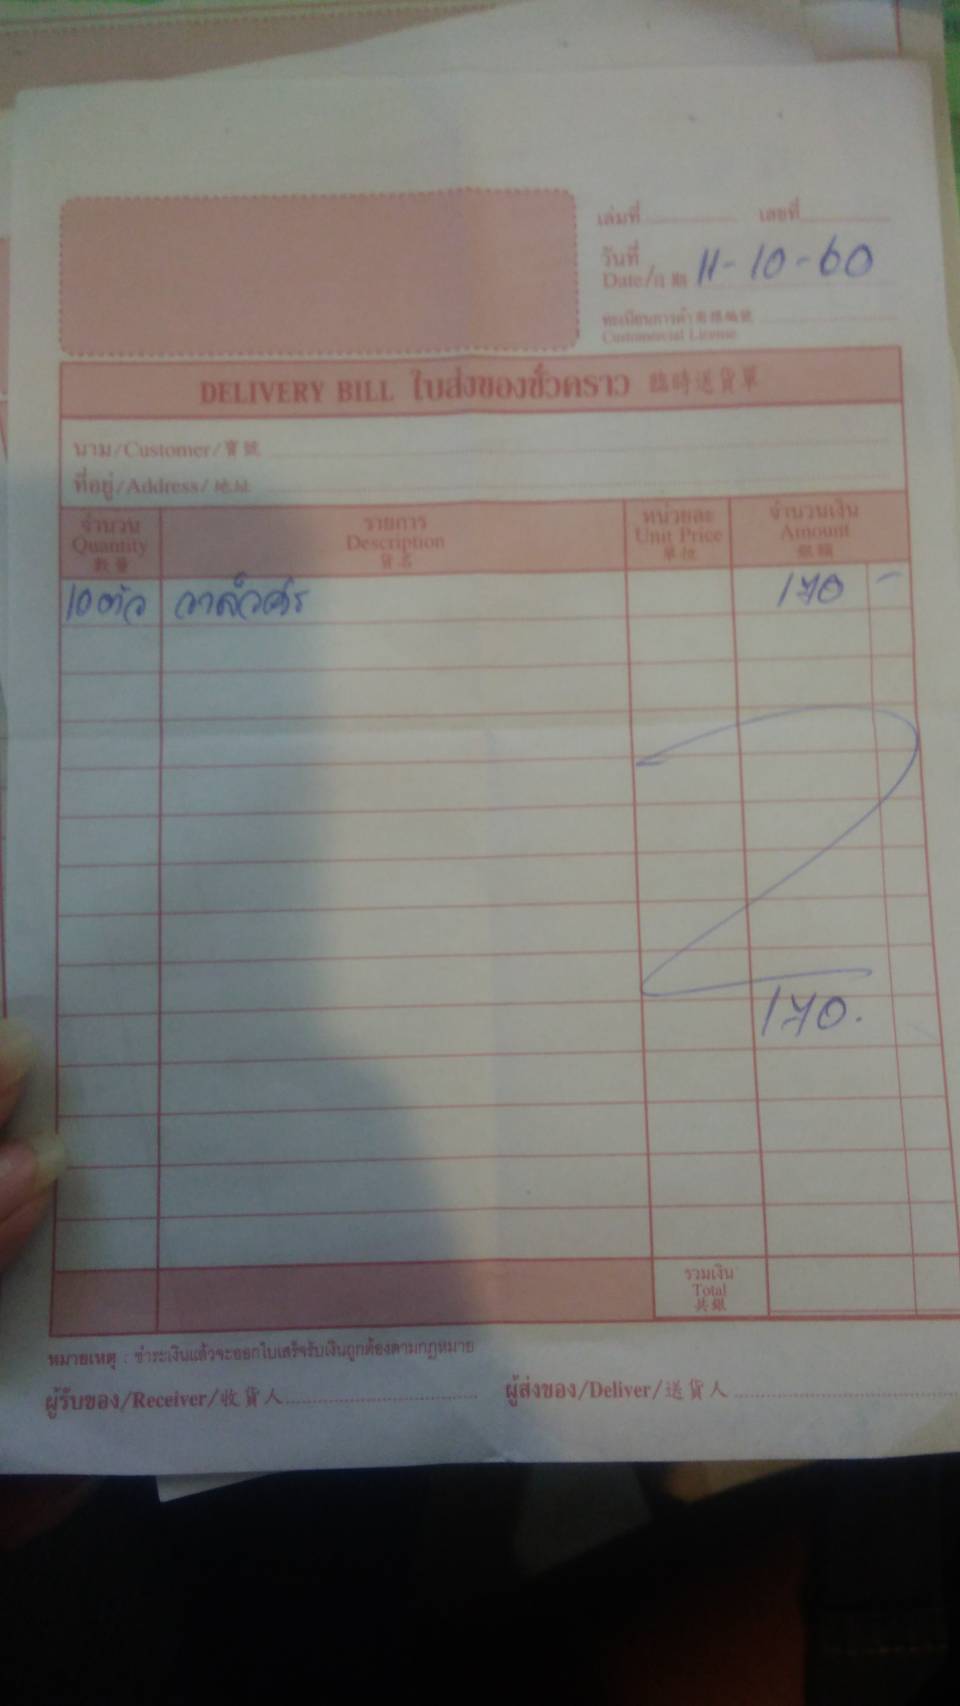 เล่มที่ ................ เลขที่ ................
วันที่
Date/日期 11-10-60
ทะเบียนการค้า 商標編號 ................
Commercial License
DELIVERY BILL ใบส่งของชั่วคราว 臨時送貨單
นาม/Customer/寶號
ที่อยู่/Address/地址
จำนวน รายการ หน่วยละ จำนวนเงิน
Quantity Description Unit Price Amount
數量 貨名 單位 銀額
10 ตัว วาล์วศร 170 -
170.
รวมเงิน
Total
共銀
หมายเหตุ : ชำระเงินแล้วจะออกใบเสร็จรับเงินถูกต้องตามกฎหมาย
ผู้รับของ/Receiver/收貨人 ................ ผู้ส่งของ/Deliver/送貨人 ................